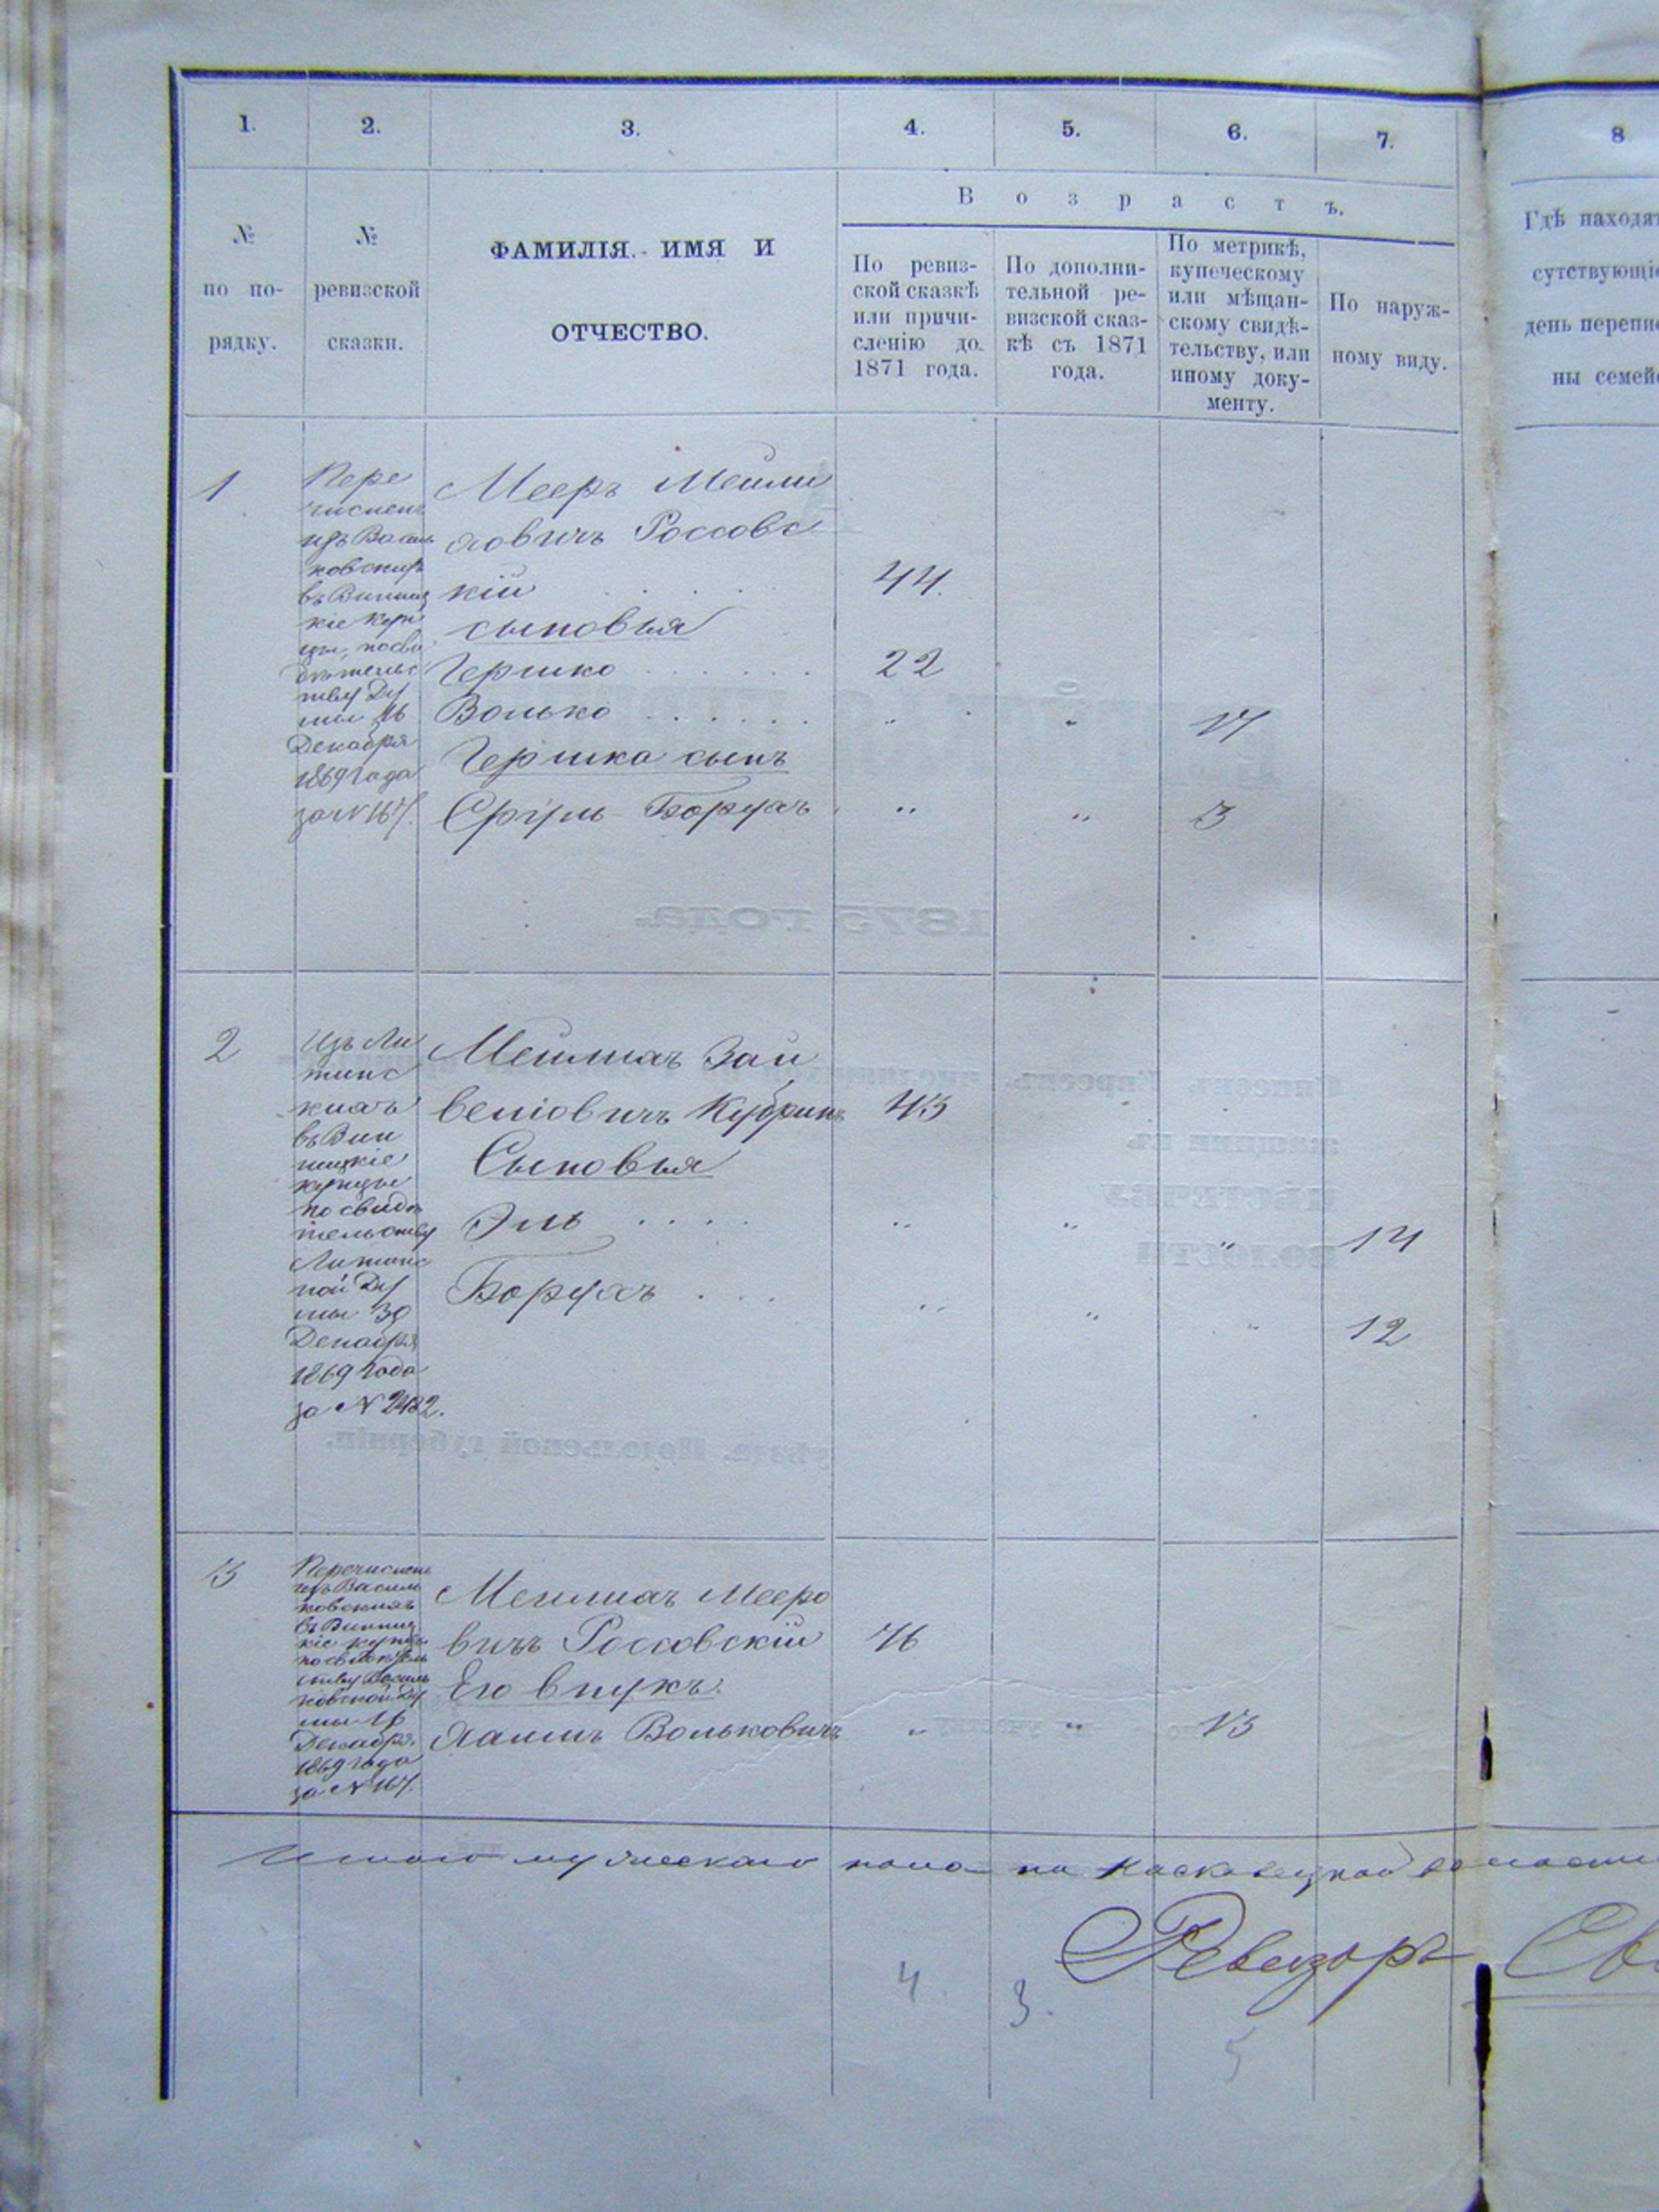 1. 2. 3. 4. 5. 6. 7. 8
Возрастъ.
№ по порядку.
№ ревизской сказки.
ФАМИЛІЯ, ИМЯ И
ОТЧЕСТВО.
По ревиз-
ской сказкѣ
или причи-
сленію до
1871 года.
По дополни-
тельной ре-
визской сказ-
кѣ съ 1871
года.
По метрикѣ,
купеческому
или мѣщан-
скому свидѣ-
тельству, или
иному доку-
менту.
По наруж-
ному виду.
Гдѣ находят
сутствующіе
день перепис
ны семей
1
Пере
численъ
изъ Василь
ковскихъ
въ Винниц
кіе куп
цы, по сви
дѣтельс
тву Ду
мы 16
Декабря
1869 года
за N 167.
Мееръ Мошли
ховичъ Россовс
кій 44.
сыновья
Гершко 22
Волько " " 17
Гершка сынъ
Сруль Борухъ " " 3
1875 года.
2
Изъ Ли
тинс
кихъ
въ Вин
ницкіе
купцы
по свидѣ
тельству
Литинс
кой Ду
мы 30
Декабря
1869 года
за N 2482.
Зай
веліовичъ 43
Сыновья
Эль " " " 14
Борухъ " " " 12
3
Перечислен
изъ Василь
ковскихъ
въ Винниц
кіе купцы
по свидѣтель
ству Василь
ковской Ду
мы 16
Декабря
1869 года
за N 167.
Мееро
вичъ Россовскій 46
Его внукъ
Хаимъ Вольковичъ " " 13
Итого мужескаго пола по волости
4 3. 5
Ревизоръ